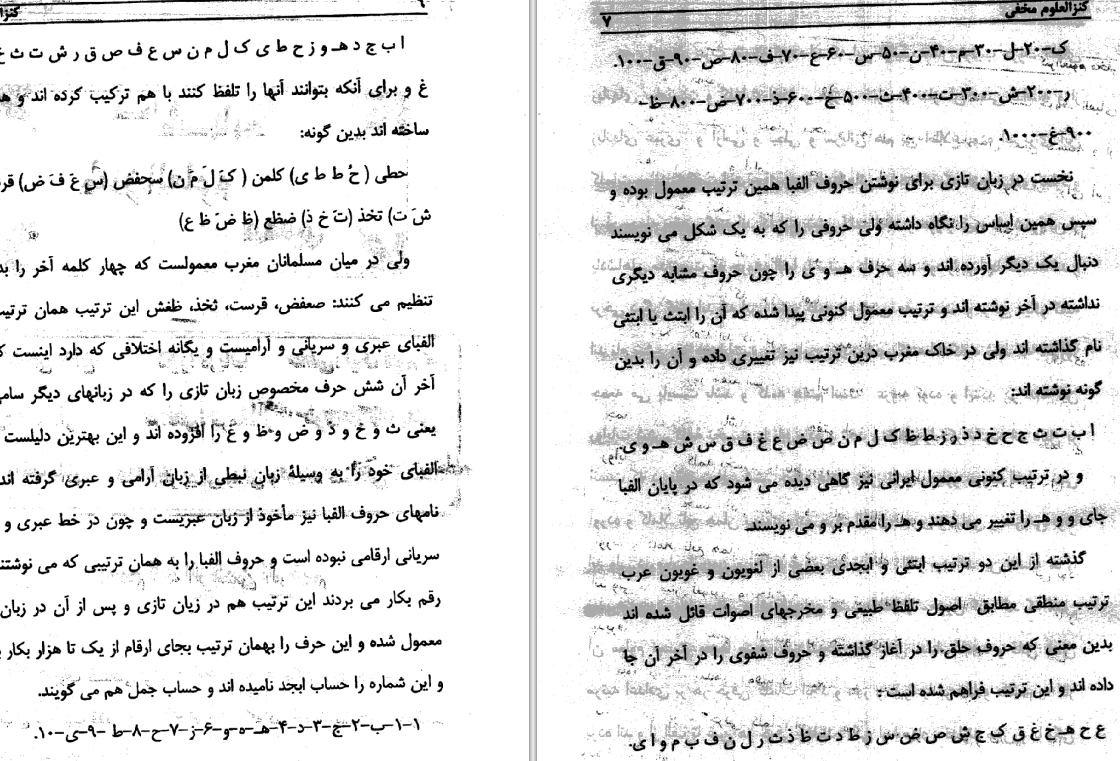 ۶
ا ب ج د هـ و ز ح ط ی ک ل م ن س ع ف ص ق ر ش ت ث خ
غ و برای آنکه بتوانند آنها را تلفظ کنند با هم ترکیب کرده اند و
ساخته اند بدین گونه:
حطی ( حُ ط ط ی) کلمن ( کَ لَ مَ ن) سحفض (سَ عَ فَ ض)
شَ ت) تخذ (تَ خَ ذ) ضظع (ظَ ضَ ظَ ع)
ولی در میان مسلمانان مغرب معمولست که چهار کلمه آخر را
تنظیم می کنند: صعفض، قرست، ثخذ، ظفش این ترتیب همان
الفبای عبری و سریانی و آرامیست و یگانه اختلافی که دارد اینست
آخر آن شش حرف مخصوص زبان تازی را که در زبانهای دیگر
یعنی ث و خ و ذ و ض و ظ و غ را افزوده اند و این بهترین دلیلست
الفبای خود را به وسیلهٔ زبان نبطی از زبان آرامی و عبری گرفته اند
نامهای حروف الفبا نیز مأخوذ از زبان عبریست و چون در خط عبری و
سریانی ارقامی نبوده است و حروف الفبا را به همان ترتیبی که می نوشتند
رقم بکار می بردند این ترتیب هم در زبان تازی و پس از آن در زبان
معمول شده و این حرف را بهمان ترتیب بجای ارقام از یک تا هزار بکار
و این شماره را حساب ابجد نامیده اند و حساب جمل هم می گویند.
۱-۱-ب-۲-ج-۳-د-۴-هـ-ه-و-۶-ز-۷-ح-۸-ط-۹-ی-۱۰.
کنزالعلوم مخفی
۷
ک-۲۰-ل-۳۰-م-۴۰-ن-۵۰-س-۶۰-ع-۷۰-ف-۸۰-ص-۹۰-ق-۱۰۰.
ر-۲۰۰-ش-۳۰۰-ت-۴۰۰-ث-۵۰۰-خ-۶۰۰-ذ-۷۰۰-ض-۸۰۰-ظ-
۹۰۰-غ-۱۰۰۰.
نخست در زبان تازی برای نوشتن حروف الفبا همین ترتیب معمول بوده و
سپس همین اساس را نگاه داشته ولی حروفی را که به یک شکل می نویسند
دنبال یک دیگر آورده اند و سه حرف هـ و ی را چون حروف مشابه دیگری
نداشته در آخر نوشته اند و ترتیب معمول کنونی پیدا شده که آن را ابتث یا ابتثی
نام گذاشته اند ولی در خاک مغرب درین ترتیب نیز تغییری داده و آن را بدین
گونه نوشته اند:
ا ب ت ث ج ح خ د ذ ر ز ط ظ ک ل م ن ص ض ع غ ف ق س ش هـ و ی.
و در ترتیب کنونی معمول ایرانی نیز گاهی دیده می شود که در پایان الفبا
جای و و هـ را تغییر می دهند و هـ را مقدم بر و می نویسند.
گذشته از این دو ترتیب ابتثی و ابجدی بعضی از لغویون و غویون عرب
ترتیب منطقی مطابق اصول تلفظ طبیعی و مخرجهای اصوات قائل شده اند
بدین معنی که حروف حلق را در آغاز گذاشته و حروف شفوی را در آخر آن جا
داده اند و این ترتیب فراهم شده است:
ع ح هـ خ غ ق ک ج ش ص ض س ز ط د ت ظ ذ ث ر ل ن ف ب م و ا ی.